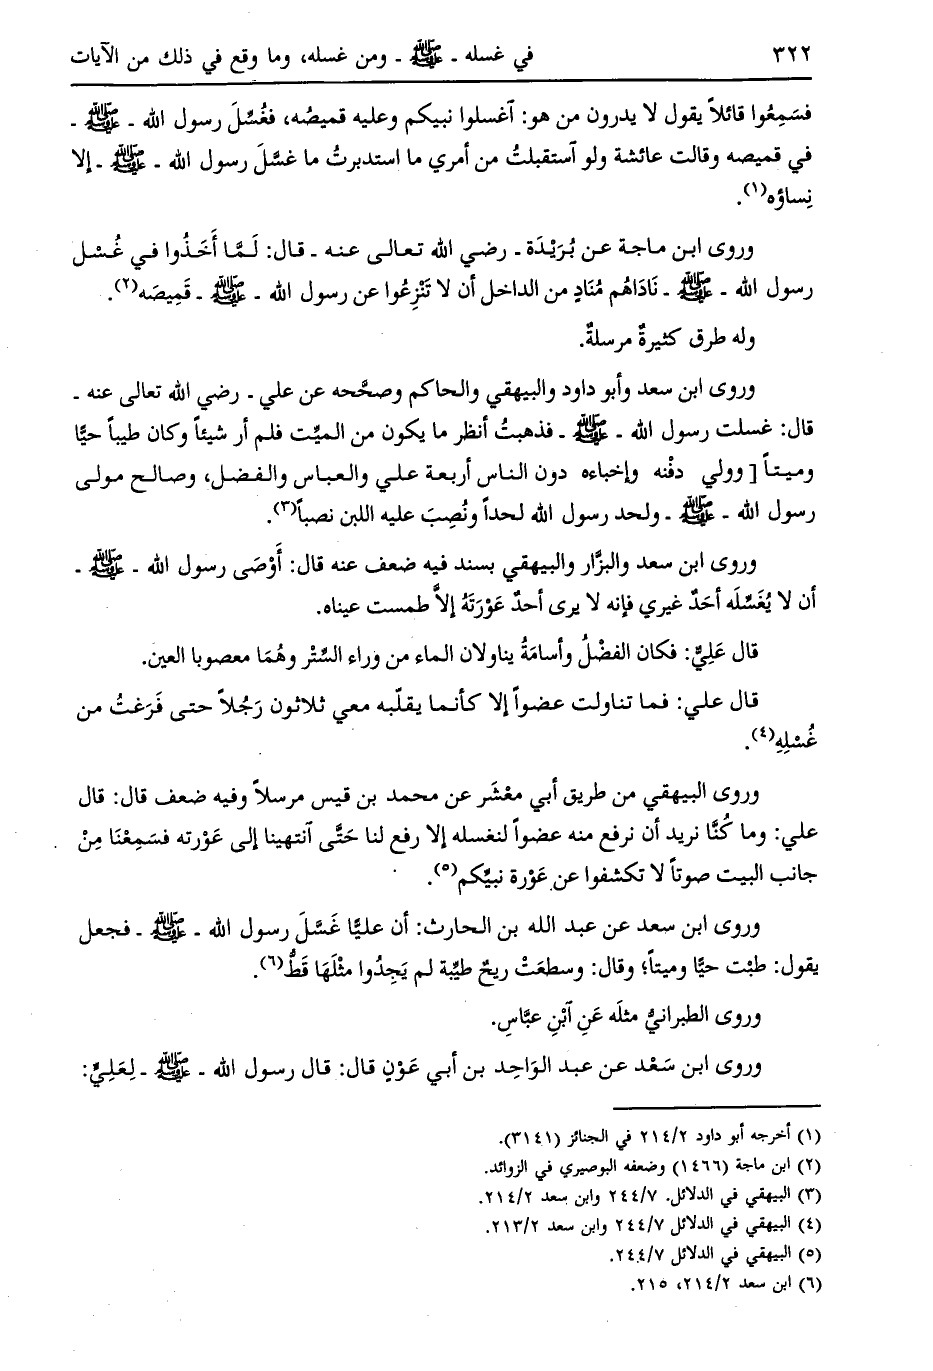 ٣٢٢ في غسله ـ ﷺ ـ ومن غسله، وما وقع في ذلك من الآيات
فسَمِعُوا قائلاً يقول لا يدرون من هو: آغسلوا نبيكم وعليه قميصُه، فغُسِّلَ رسول الله ـ ﷺ ـ
في قميصه وقالت عائشة ولو آستقبلتُ من أمري ما استدبرتُ ما غسَّلَ رسول الله ـ ﷺ ـ إلا
نِساؤه(١).
وروى ابن ماجة عن بُرَيْدَة ـ رضي الله تعالى عنه ـ قال: لَمَّا أَخَذُوا في غُسْل
رسول الله ـ ﷺ ـ نَادَاهُم مُنَادٍ من الداخل أن لا تَنْزِعُوا عن رسول الله ـ ﷺ ـ قَمِيصَه(٢).
وله طرق كثيرةٌ مرسلةٌ.
وروى ابن سعد وأبو داود والبيهقي والحاكم وصحَّحه عن علي ـ رضي الله تعالى عنه ـ
قال: غسلت رسول الله ـ ﷺ ـ فذهبتُ أنظر ما يكون من الميِّت فلم أر شيئاً وكان طيباً حيًّا
وميتاً [ وولي دفْنه وإخباءه دون الناس أربعة علي والعباس والفضل، وصالح مولى
رسول الله ـ ﷺ ـ ولحد رسول الله لحداً ونُصِبَ عليه اللبن نصباً(٣).
وروى ابن سعد والبزَّار والبيهقي بسند فيه ضعف عنه قال: أَوْصَى رسول الله ـ ﷺ ـ
أن لا يُغَسِّلَه أحَدٌ غيري فإنه لا يرى أحدٌ عَوْرَتَهُ إلاَّ طمست عيناه.
قال عَلِيٌّ: فكان الفضْلُ وأسامَةُ يناولان الماء من وراء السِّتْر وهُمَا معصوبا العين.
قال علي: فما تناولت عضواً إلا كأنما يقلّبه معي ثلاثون رَجُلاً حتى فَرَغتُ من
غُسْلِهِ(٤).
وروى البيهقي من طريق أبي معْشَر عن محمد بن قيس مرسلاً وفيه ضعف قال: قال
علي: وما كُنَّا نريد أن نرفع منه عضواً لنغسله إلا رفع لنا حَتَّى آنتهينا إلى عَوْرته فسَمِعْنَا مِنْ
جانب البيت صوتاً لا تكشفوا عن عَوْرة نبيِّكم(٥).
وروى ابن سعد عن عبد الله بن الحارث: أن عليًّا غَسَّلَ رسول الله ـ ﷺ ـ فجعل
يقول: طبْت حيًّا وميتاً؛ وقال: وسطعَتْ ريحٌ طيِّبة لم يَجِدُوا مثْلَهَا قَطُّ(٦).
وروى الطبرانيُّ مثلَه عَنِ آبْنِ عبَّاسٍ.
وروى ابن سَعْد عن عبد الوَاحِد بن أبي عَوْنٍ قال: قال رسول الله ـ ﷺ ـ لِعَلِيٍّ:
(١) أخرجه أبو داود ٢١٤/٢ في الجنائز (٣١٤١).
(٢) ابن ماجة (١٤٦٦) وضعفه البوصيري في الزوائد.
(٣) البيهقي في الدلائل. ٢٤٤/٧ وابن سعد ٢١٤/٢.
(٤) البيهقي في الدلائل ٢٤٤/٧ وابن سعد ٢١٣/٢.
(٥) البيهقي في الدلائل ٢٤٤/٧.
(٦) ابن سعد ٢١٤/٢، ٢١٥.